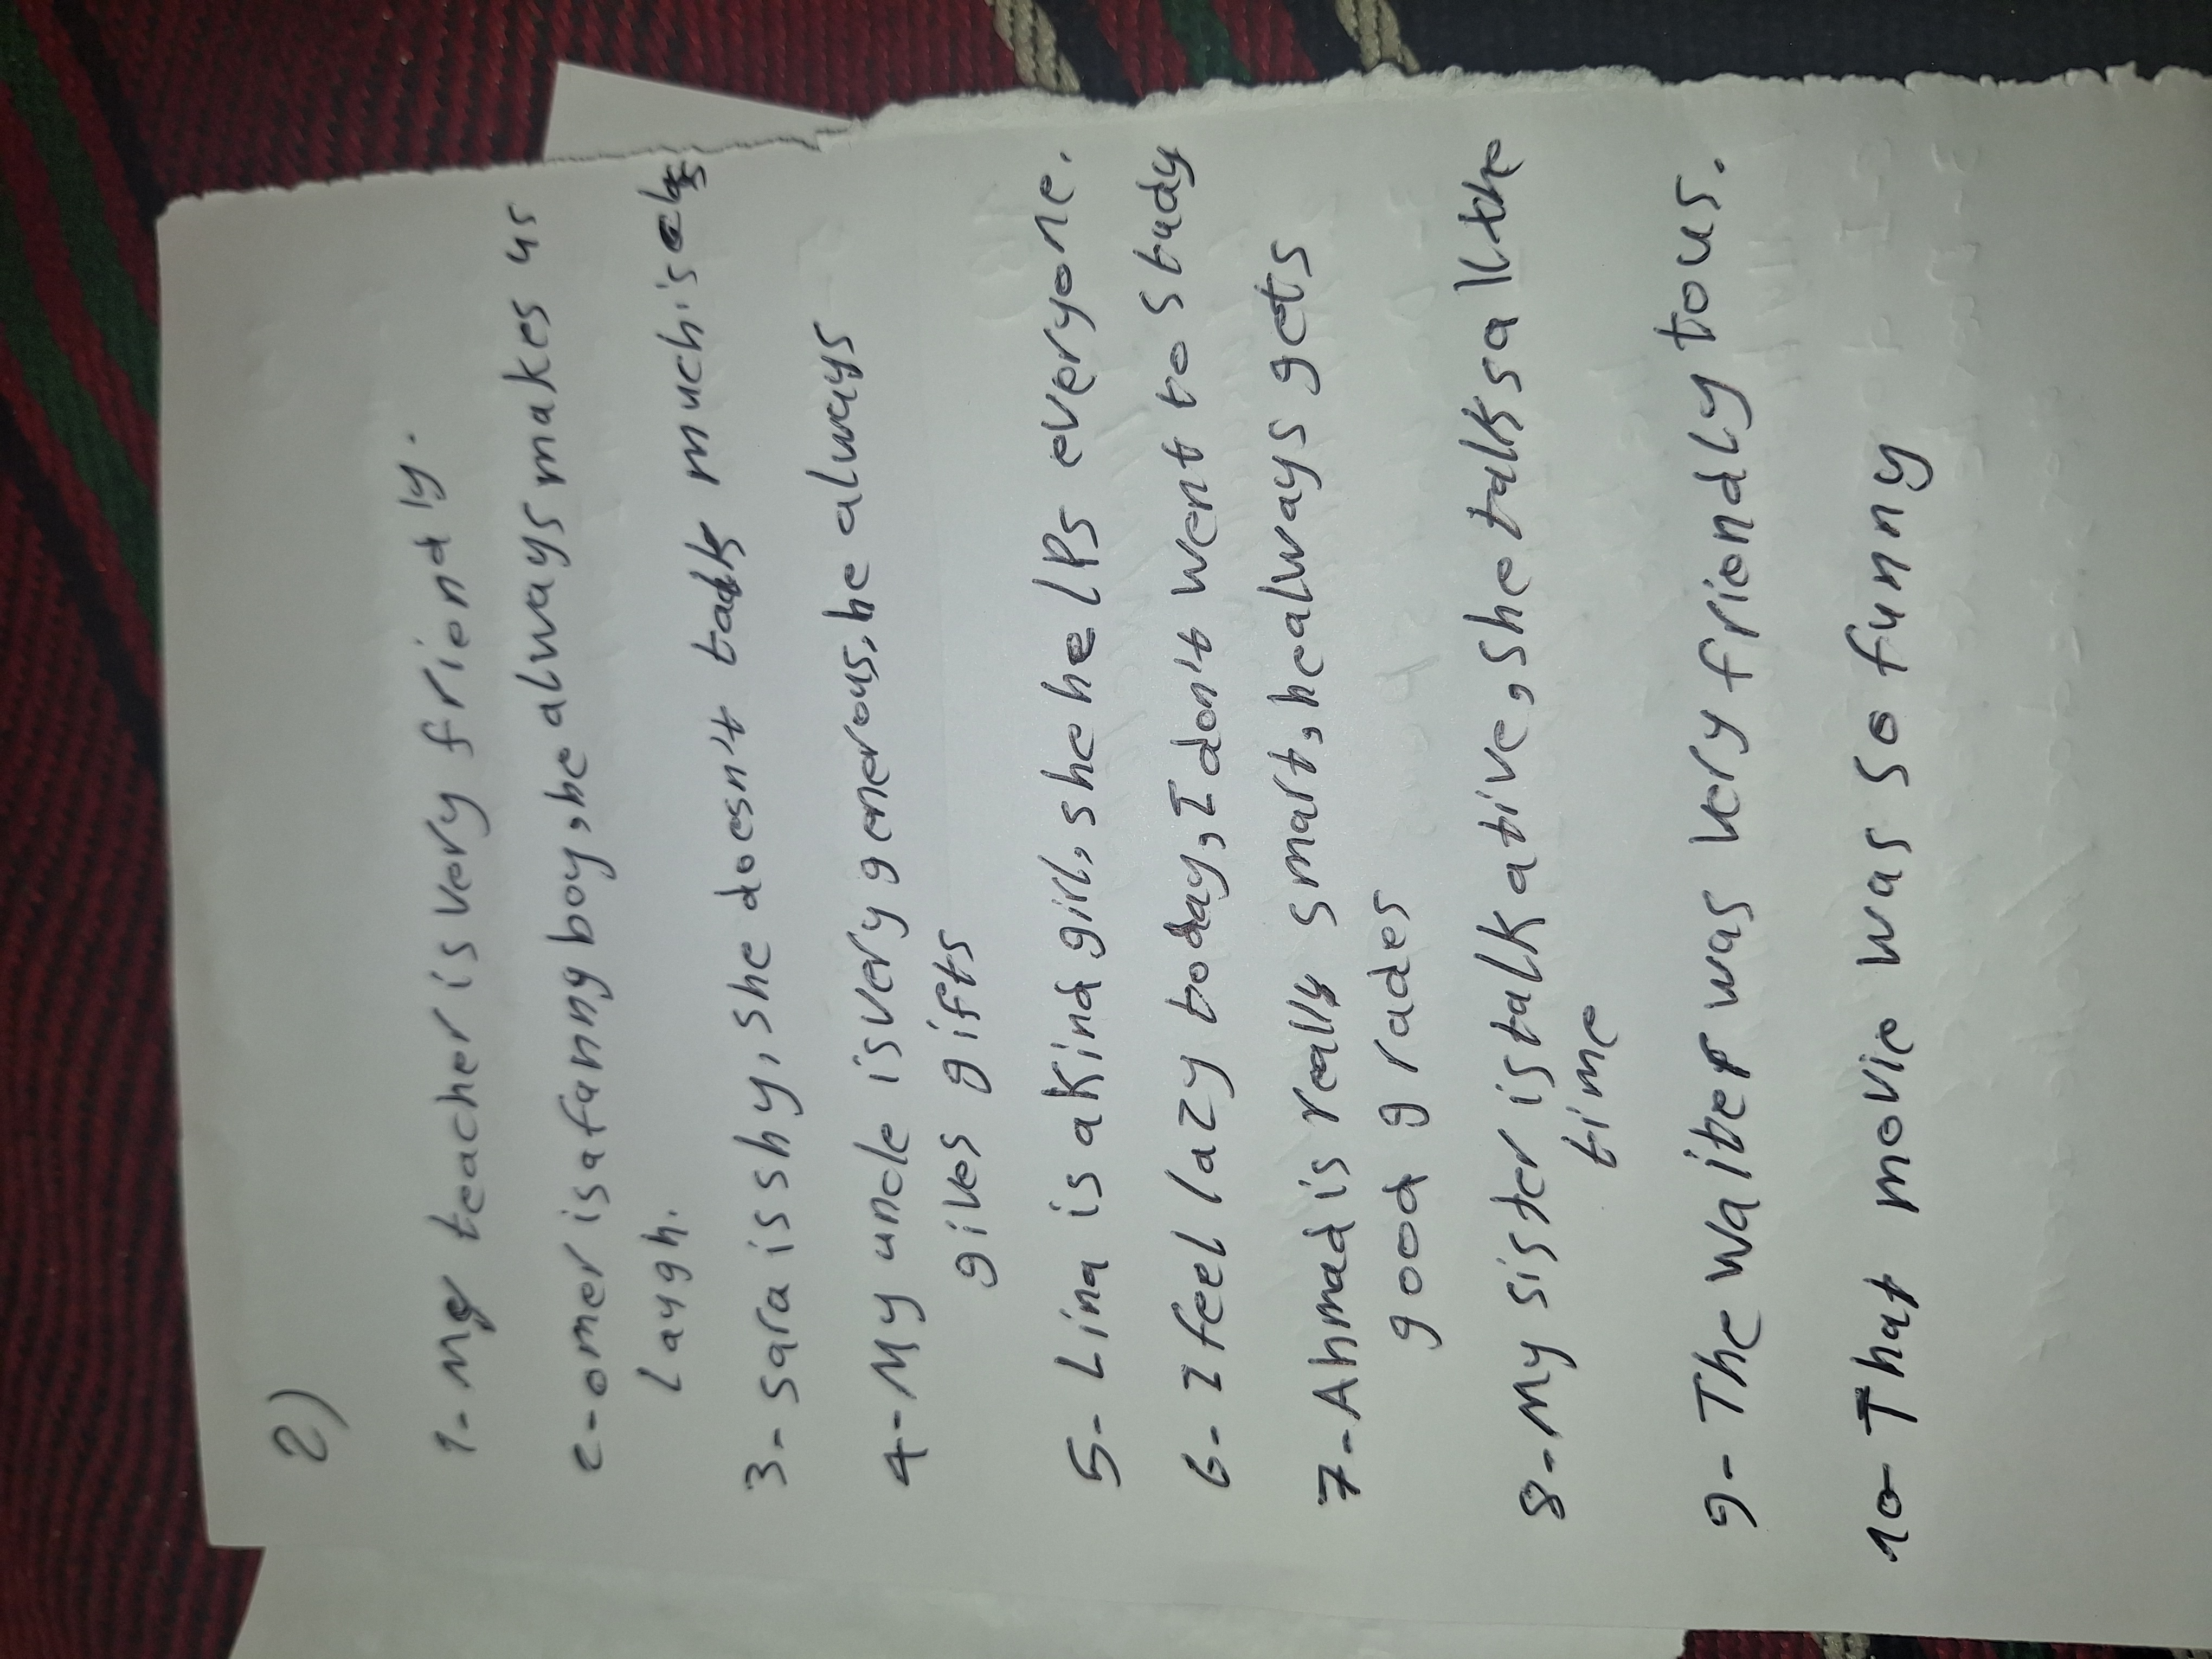 2)
1- My teacher is very friendly.
2- omer is a funny boy, he always makes us
Laugh.
3- Sara is shy, she doesn't talk much is
4- My uncle is very generous, he always
gives gifts
5- Lina is a kind girl, she helps everyone.
6- I feel lazy today, I don't went to study
7- Ahmad is really smart, he always gets
good grades
8- My sister is talkative, she talks all the
time
9- The waiter was very friendly to us.
10- That movie was so funny